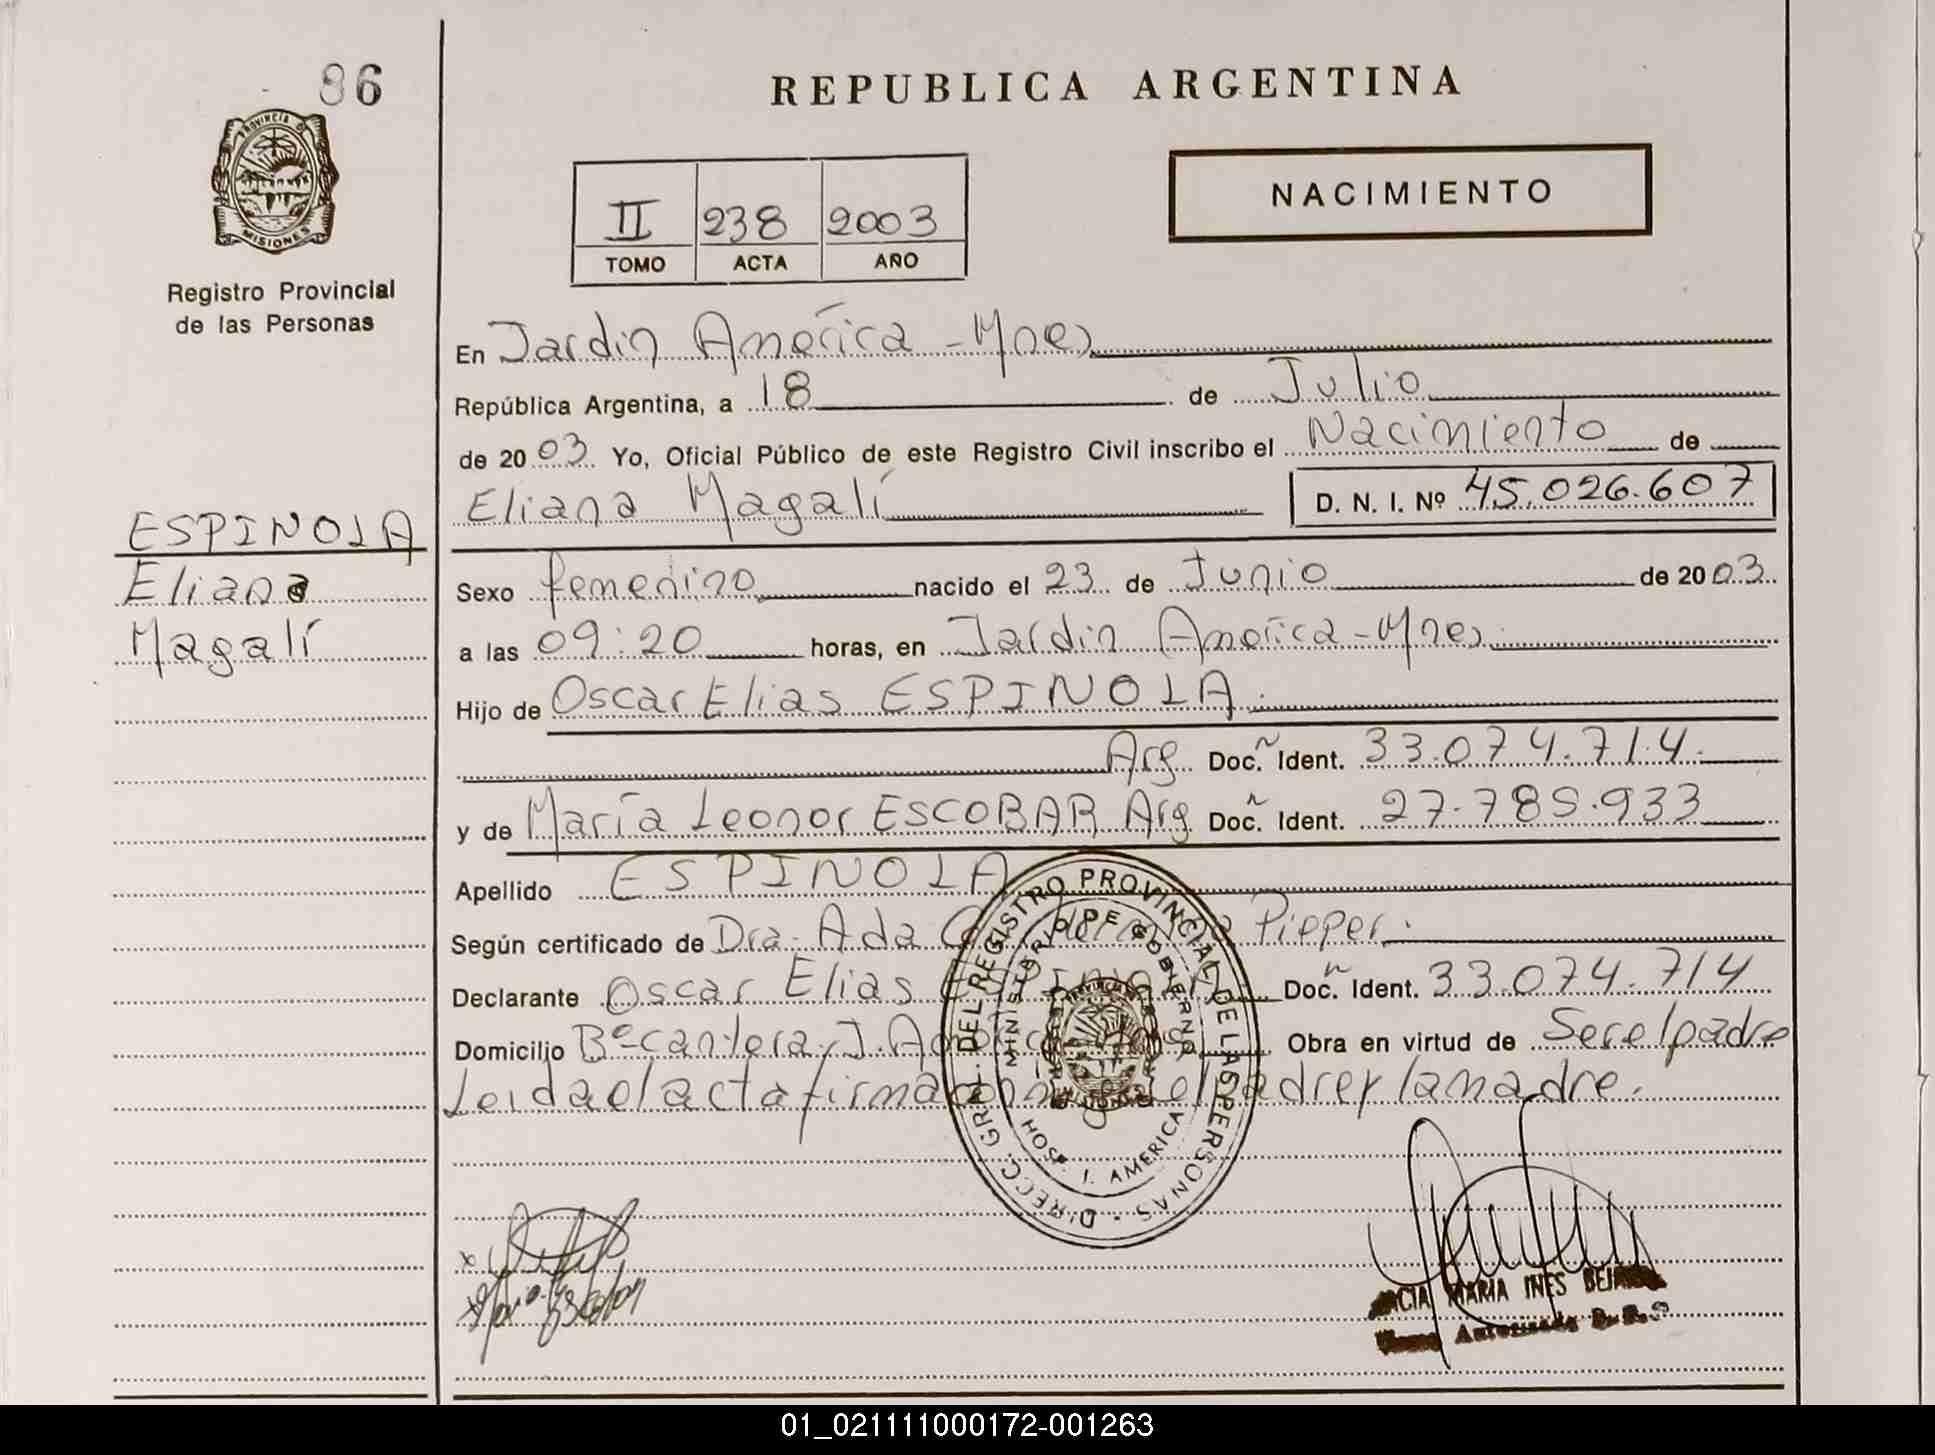 86
PROVINCIA DE
MISIONES
Registro Provincial
de las Personas
ESPINOLA
Eliana
Magalí
REPUBLICA ARGENTINA
NACIMIENTO
II 238 2003
TOMO ACTA AÑO
En Jardin América - Mnes
República Argentina, a 18 de Julio
de 2003 Yo, Oficial Público de este Registro Civil inscribo el Nacimiento de
Eliana Magalí D. N. I. Nº 45.026.607
Sexo femenino nacido el 23 de Junio de 2003
a las 09:20 horas, en Jardin América - Mnes
Hijo de Oscar Elias ESPINOLA
Arg Doc. Ident. 33.074.714
y de María Leonor ESCOBAR Arg Doc. Ident. 27.789.933
Apellido ESPINOLA
Según certificado de Dra. Ada Pieper.
Declarante Oscar Elias Doc. Ident. 33.074.714
Domicilio Bº cantera, J. Obra en virtud de Ser el padre
Leida el acta firman el padre y la madre.
DIRECC. GRAL. DEL REGISTRO PROVINCIAL DE LAS PERSONAS
MINISTERIO DE GOBIERNO
J. AMERICA
MARIA INES
01_021111000172-001263